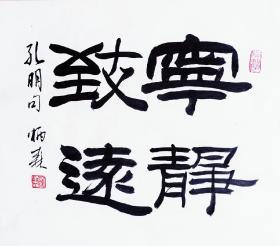 寧靜
致遠
孔明句 炳森